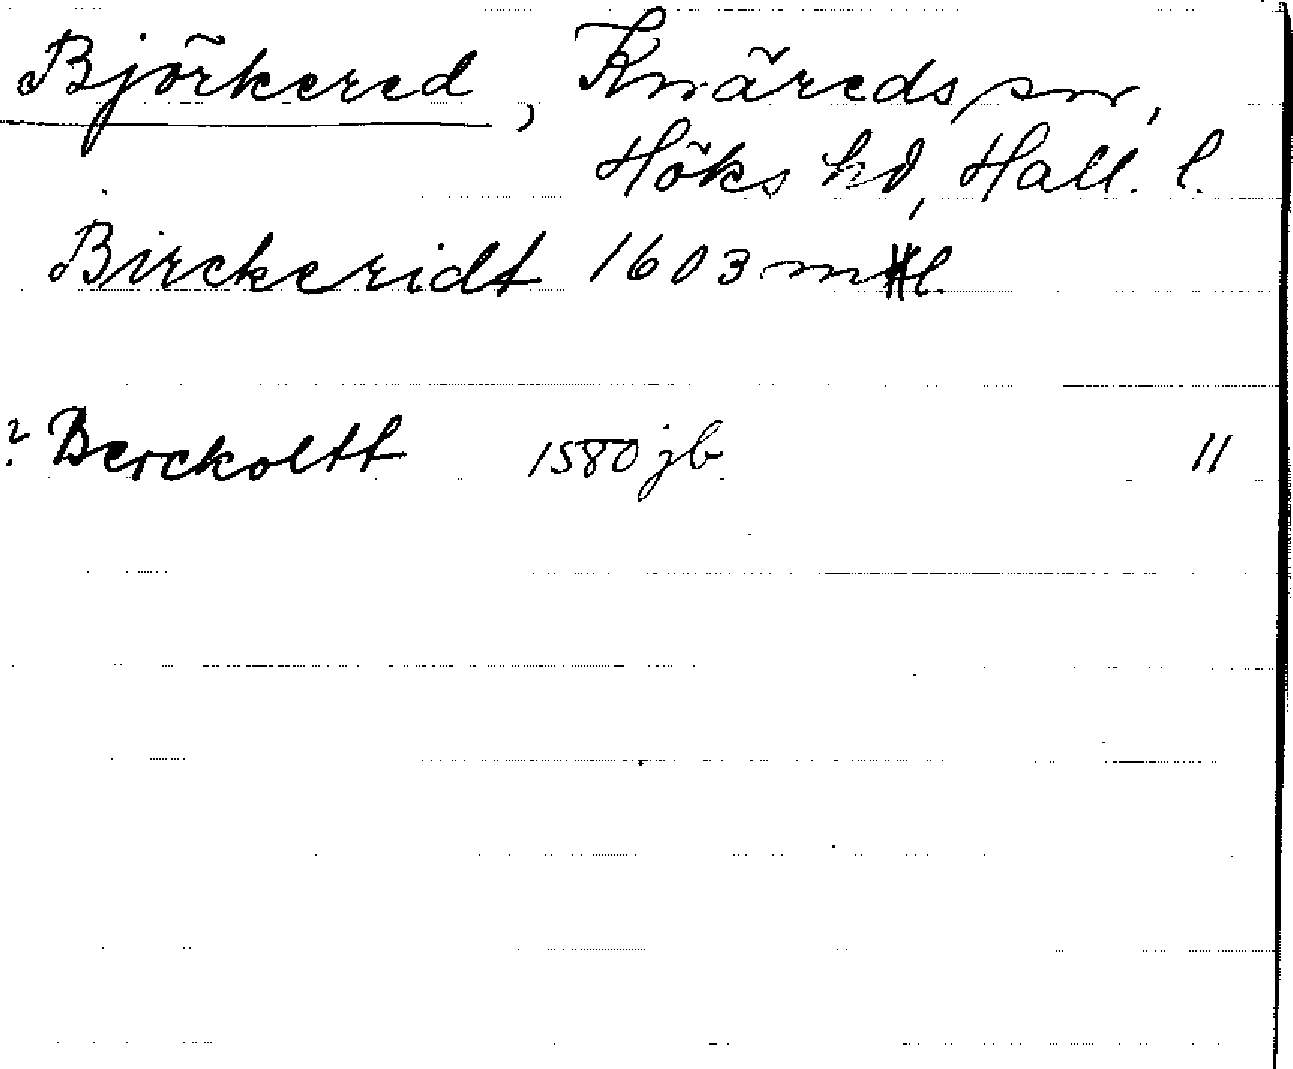 Björkered, Knäreds sn,
Höks hd, Hall. l.
Birckeridt 1603 ml.
? Berckoltt 1580 jb 11